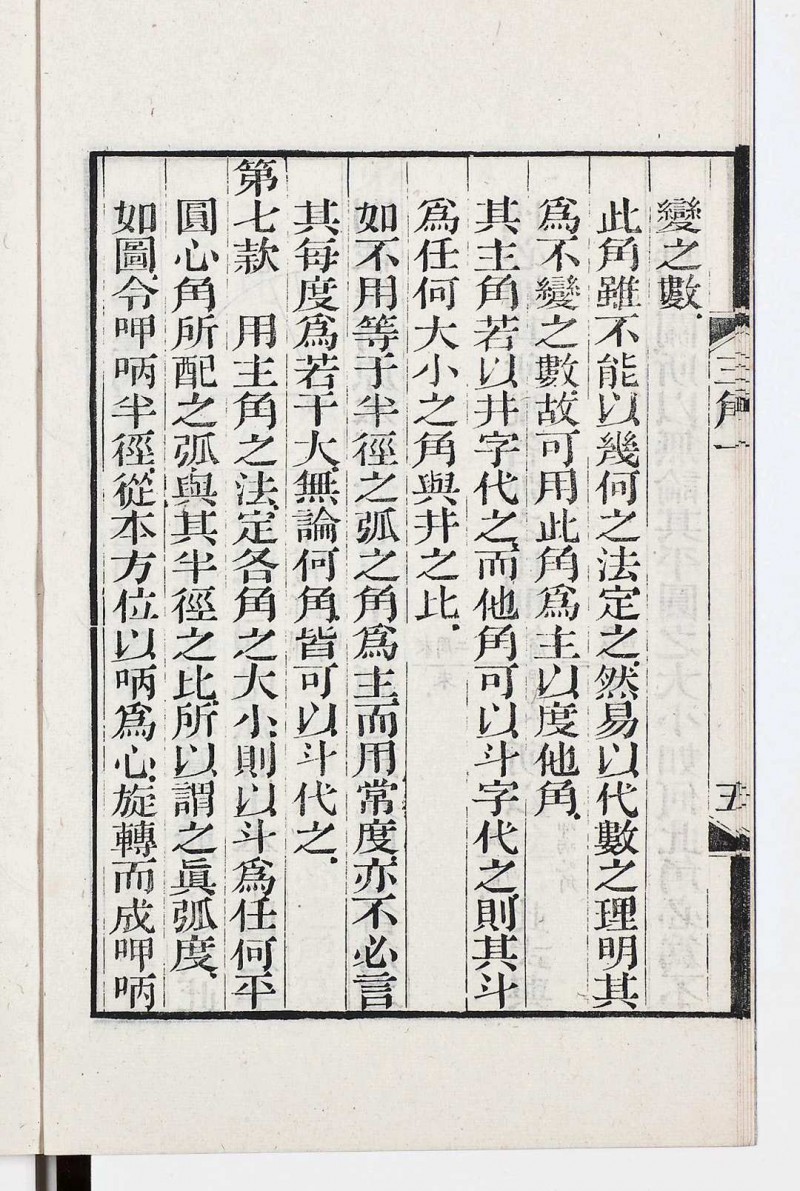 三角一
五
變之數
此角雖不能以幾何之法定之、然易以代數之理明其
爲不變之數、故可用此角爲主以度他角.
其主角若以井字代之、而他角可以斗字代之、則其斗
爲任何大小之角與井之比.
如不用等于半徑之弧之角爲主、而用常度、亦不必言
其每度爲若干大、無論何角、皆可以斗代之.
第七款　用主角之法、定各角之大小、則以斗爲任何平
圓心角所配之弧與其半徑之比、所以謂之眞弧度.
如圖、令呷㕫半徑、從本方位以㕫爲心、旋轉而成呷㕫